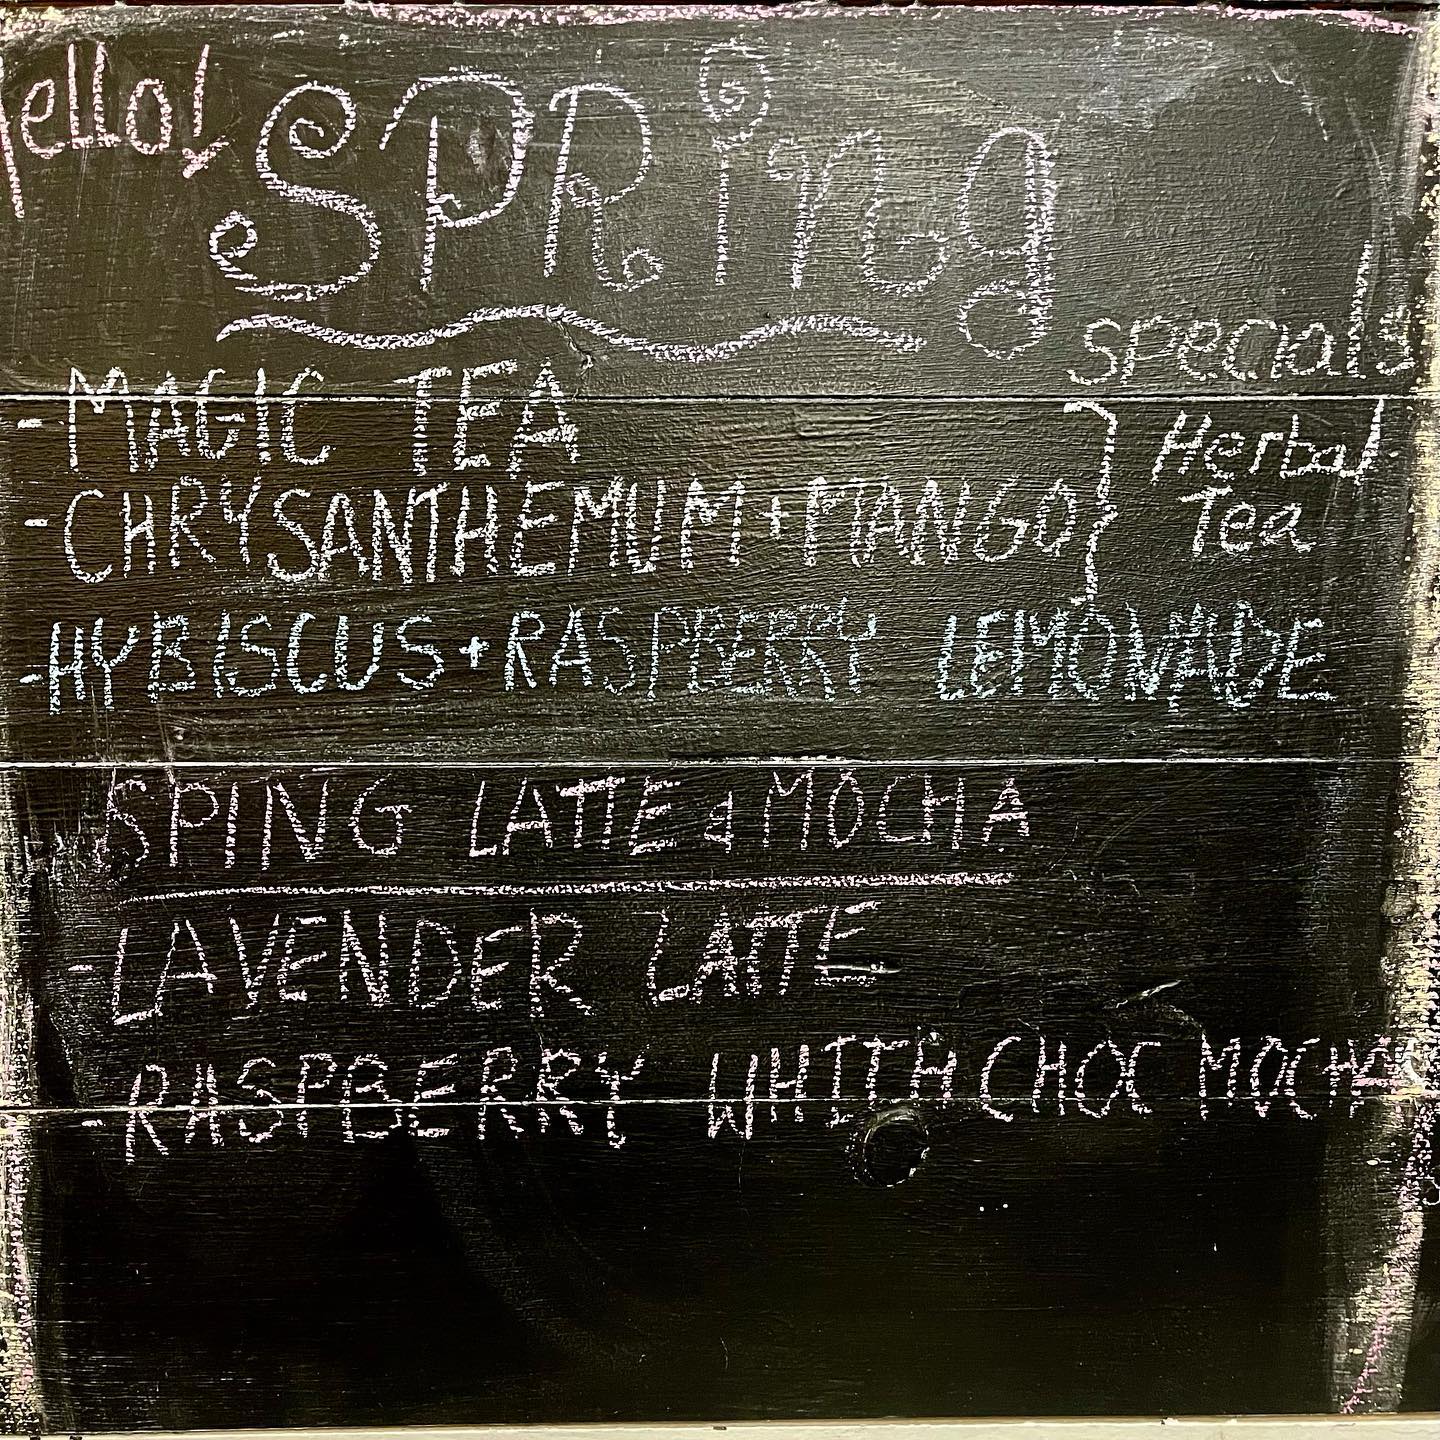 Hello!
SPRing
specials
- MAGIC TEA
- CHRYSANTHEMUM + MANGO } Herbal Tea
- HYBISCUS + RASPBERRY LEMONADE
SPING LATTE & MOCHA
- LAVENDER LATTE
- RASPBERRY WHITH CHOC MOCHA